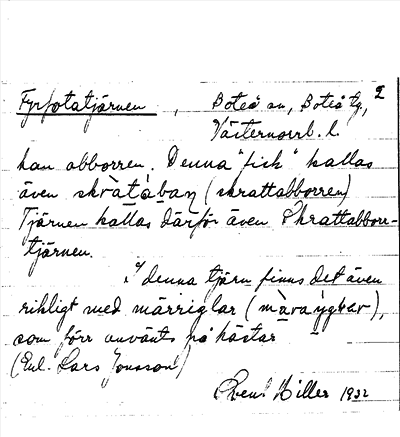 Fyrfotatjärnen, Boteå sn, Boteå tg, 2
Västernorrl. l.
han abborren. Denna "fisk" kallas
även skràtábaɳ (skrattabborren)
Tjärnen kallas därför även Skrattabborr-
tjärnen.
I denna tjärn finns det även
rikligt med märriglar (mæ̀raýglar),
som förr använts på hästar
(Enl. Lars Jonsson)
Hiller 1932